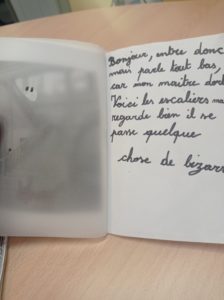 Bonjour, entre donc
mais parle tout bas,
car mon maître dort
Voici les escaliers mais
regarde bien il se
passe quelque
chose de bizarre